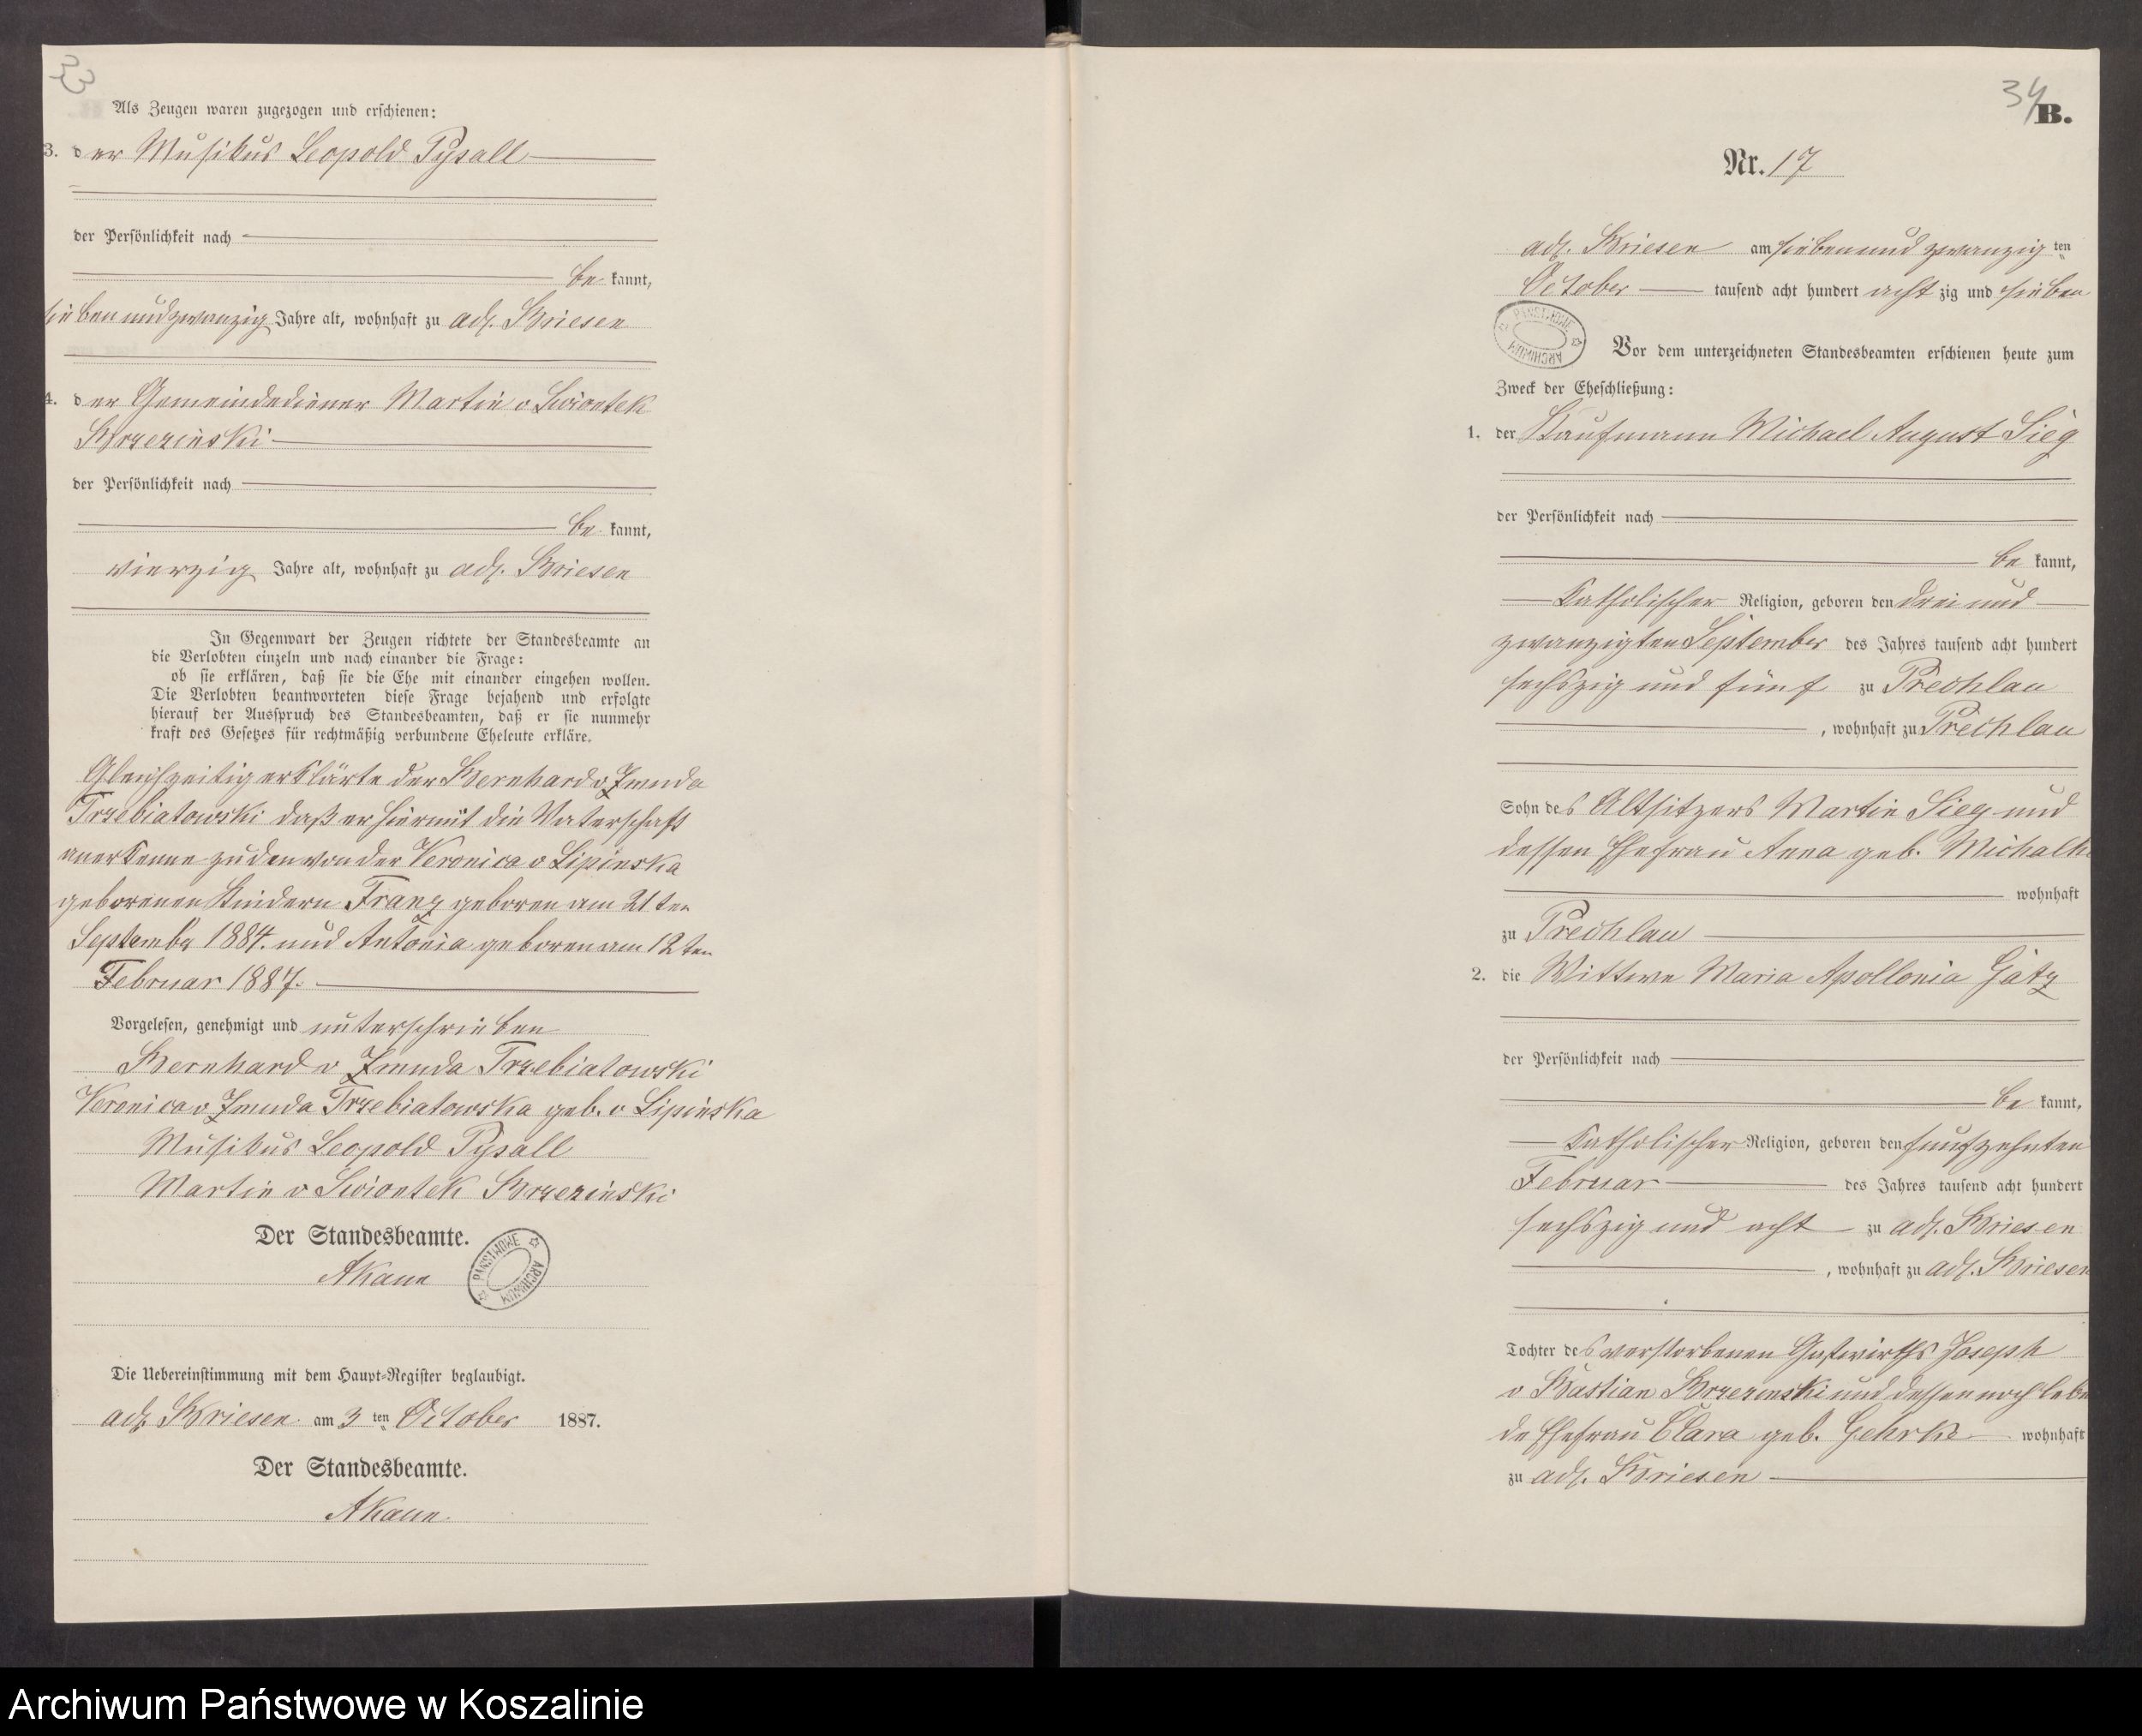 33
Als Zeugen waren zugezogen und erschienen:
3. der Musikus Leopold Pysall
der Persönlichkeit nach
be kannt,
sieben und zwanzig Jahre alt, wohnhaft zu adl. Briesen
4. der Gemeindediener Martin v Swiontek
Brzezinski
der Persönlichkeit nach
be kannt,
vierzig Jahre alt, wohnhaft zu adl. Briesen
In Gegenwart der Zeugen richtete der Standesbeamte an
die Verlobten einzeln und nach einander die Frage:
ob sie erklären, daß sie die Ehe mit einander eingehen wollen.
Die Verlobten beantworteten diese Frage bejahend und erfolgte
hierauf der Ausspruch des Standesbeamten, daß er sie nunmehr
kraft des Gesetzes für rechtmäßig verbundene Eheleute erkläre.
Gleichzeitig erklärte der Bernhard v Zmuda
Trzebiatowski daß er hiermit die Vaterschaft
anerkenne zu den von der Veronica v Lipinska
geborenen Kindern Franz geboren am 21 ten
September 1884. und Antonia geboren am 12 ten
Februar 1887.
Vorgelesen, genehmigt und unterschrieben
Bernhard v Zmuda Trzebiatowski
Veronica v Zmuda Trzebiatowska geb. v Lipinska
Musikus Leopold Pysall
Martin v Swiontek Brzezinski
Der Standesbeamte.
PAŃSTWOWE ARCHIWUM
Die Uebereinstimmung mit dem Haupt-Register beglaubigt.
adl. Briesen am 3 ten October 1887.
Der Standesbeamte.
34
B.
Nr. 17
adl. Briesen am sieben und zwanzig ten
October tausend acht hundert acht zig und sieben
PAŃSTWOWE ARCHIWUM
Vor dem unterzeichneten Standesbeamten erschienen heute zum
Zweck der Eheschließung:
1. der Kaufmann Michael August Sieg
der Persönlichkeit nach
be kannt,
Katholischer Religion, geboren den drei und
zwanzigten September des Jahres tausend acht hundert
sechszig und fünf zu Prechlau
, wohnhaft zu Prechlau
Sohn des Altsitzers Martin Sieg und
dessen Ehefrau Anna geb.
wohnhaft
zu Prechlau
2. die Wittwe Maria Apollonia Gatz
der Persönlichkeit nach
be kannt,
Katholischer Religion, geboren den fünfzehnten
Februar des Jahres tausend acht hundert
sechszig und acht zu adl. Briesen
, wohnhaft zu adl. Briesen
Tochter des verstorbenen Gastwirths Joseph
v Bastian Brzezinski und dessen noch leben
de Ehefrau Clara geb. Gehrke wohnhaft
zu adl. Briesen
Archiwum Państwowe w Koszalinie